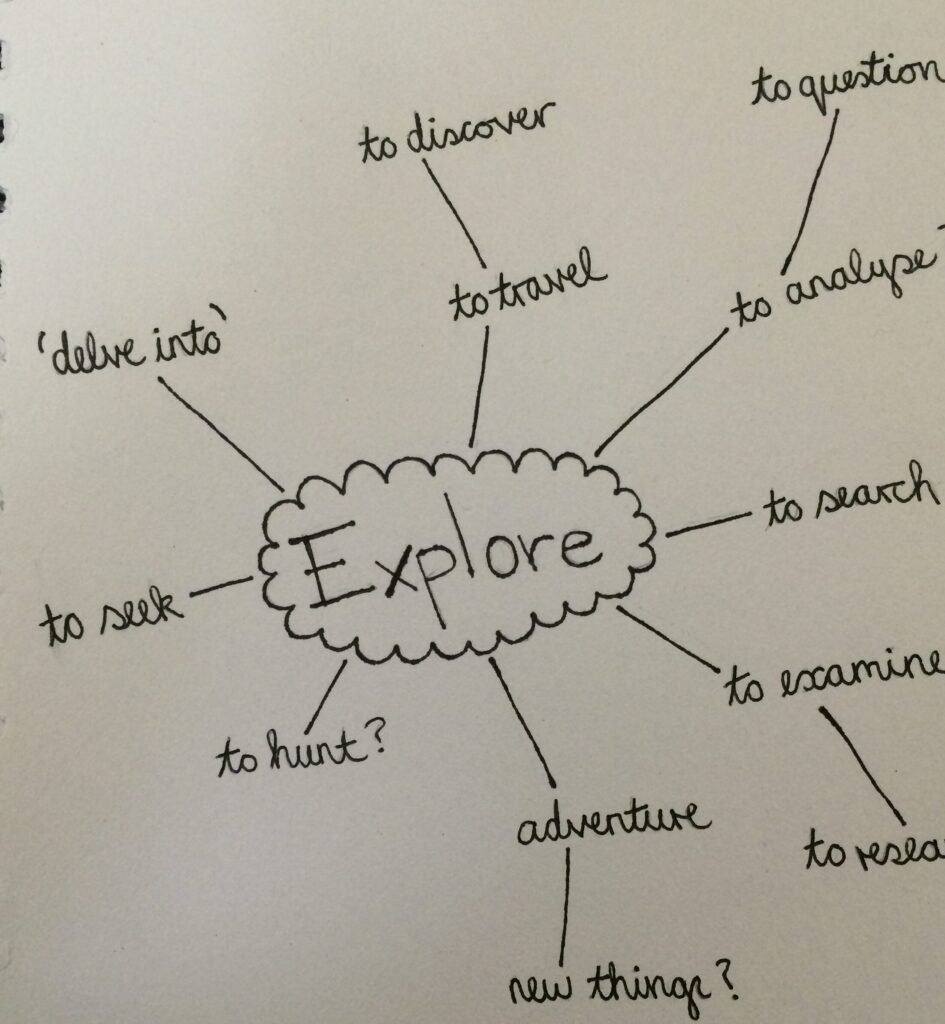 to question
to discover
to travel
to analyse
'delve into'
Explore
to search
to seek
to examine
to hunt?
adventure
to resea
new things?